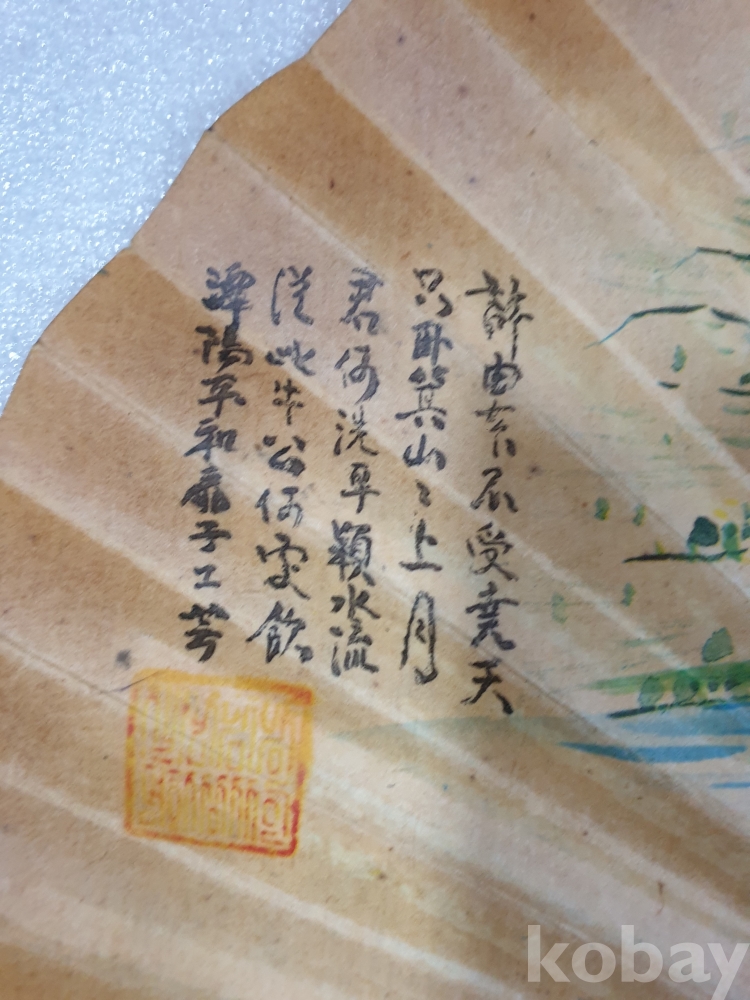 許由不受堯天
只臥箕山〻上月
君何洗耳潁水流
從此牛公何處飮
潭陽平和扇子工芸
kobay